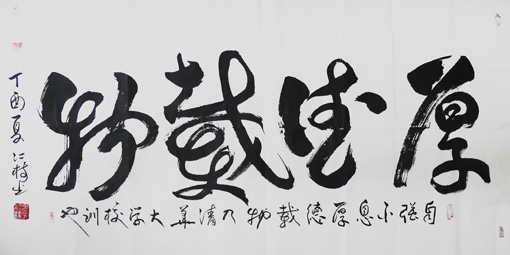 厚德載物
自强不息厚德載物乃清華大学校训也
丁酉夏